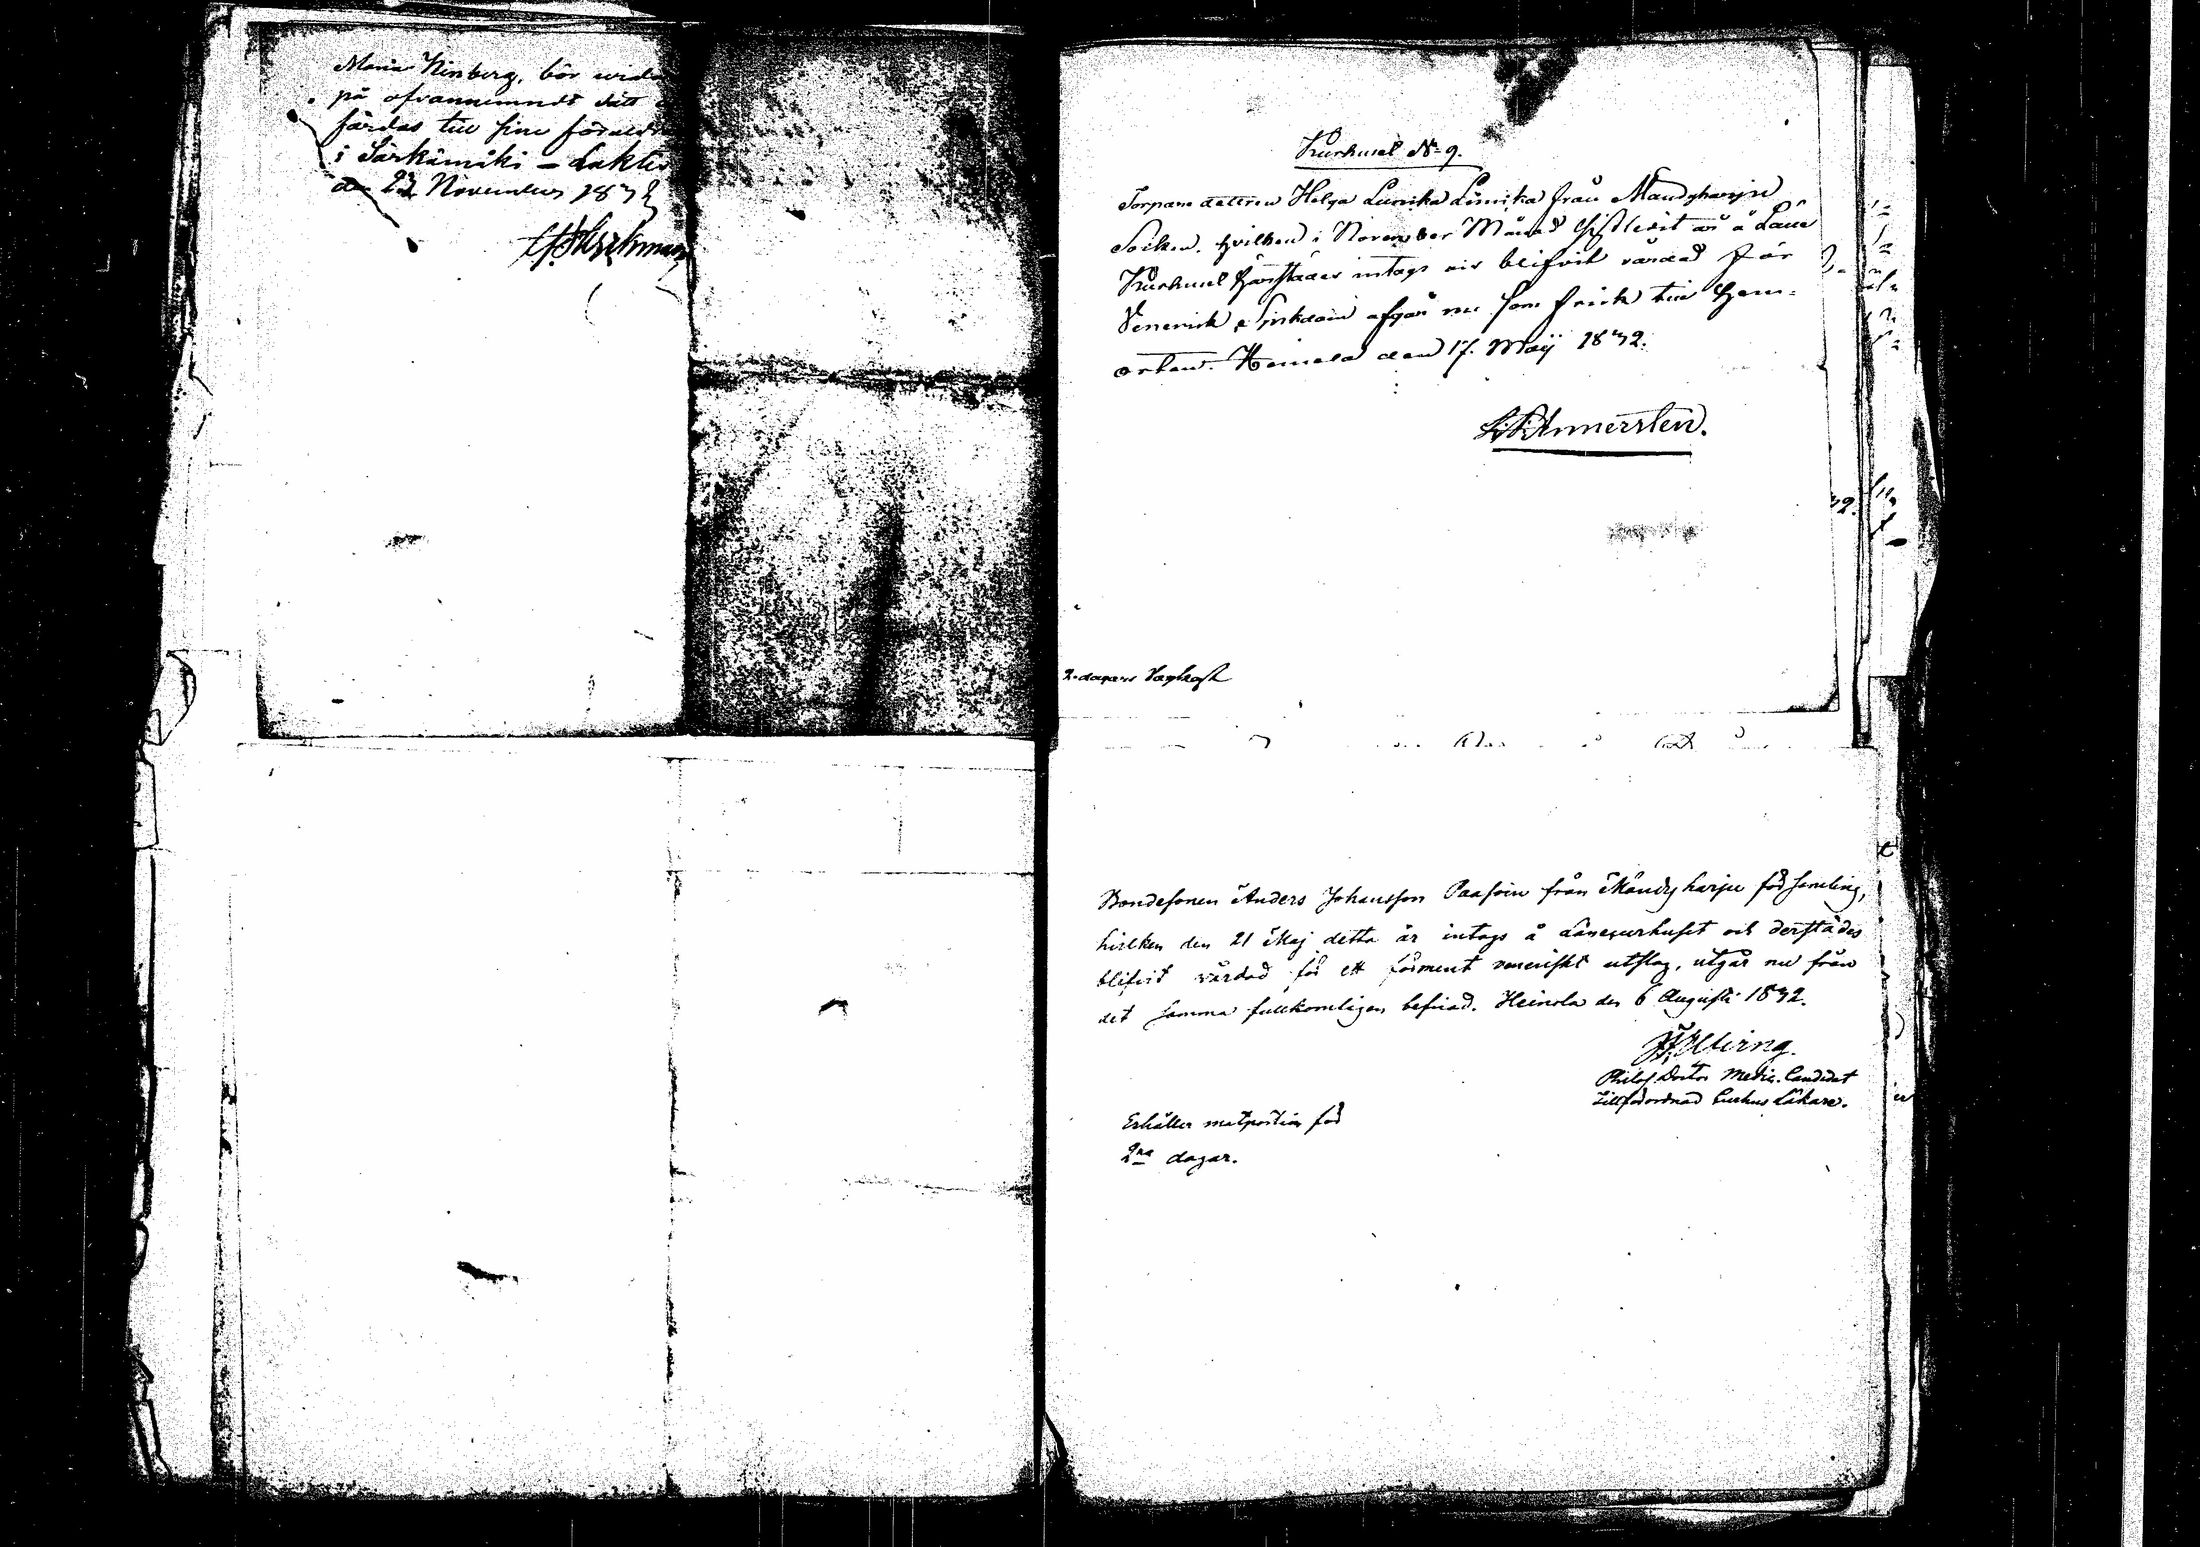 Maria Winberg, bör wid
på ofvannemnde sätt
färdas till sine föräldr
i Särkämäki - Lukte
den 23 November 1832
Kurhuset N:o 9.
Torpare dottren Helga Lunika Limika från Mandyharju
Socken, hvilken i November Månad sistledit år å Läne
Kurhuset härstädes intagit och blifvit vårdad för
Venerisk Sjukdom afgår nu som frisk till Hem-
orten. Heinola den 17. Maji 1832.
Annersten.
2. dagars Vägkost
Bondesonen Anders Johansson Paasoin från Mändyharju församling,
hvilken den 21 Maj detta år intogs å Länecurhuset och derstädes
blifvit vårdad för ett förment veneriskt utslag, utgår nu från
det samma fullkomligen befriad. Heinola den 6 Augusti 1832.
Philos. Doctor Medic. Candidat
Tillförordnad Curhus Läkare.
Erhåller matportion för
2ne dagar.